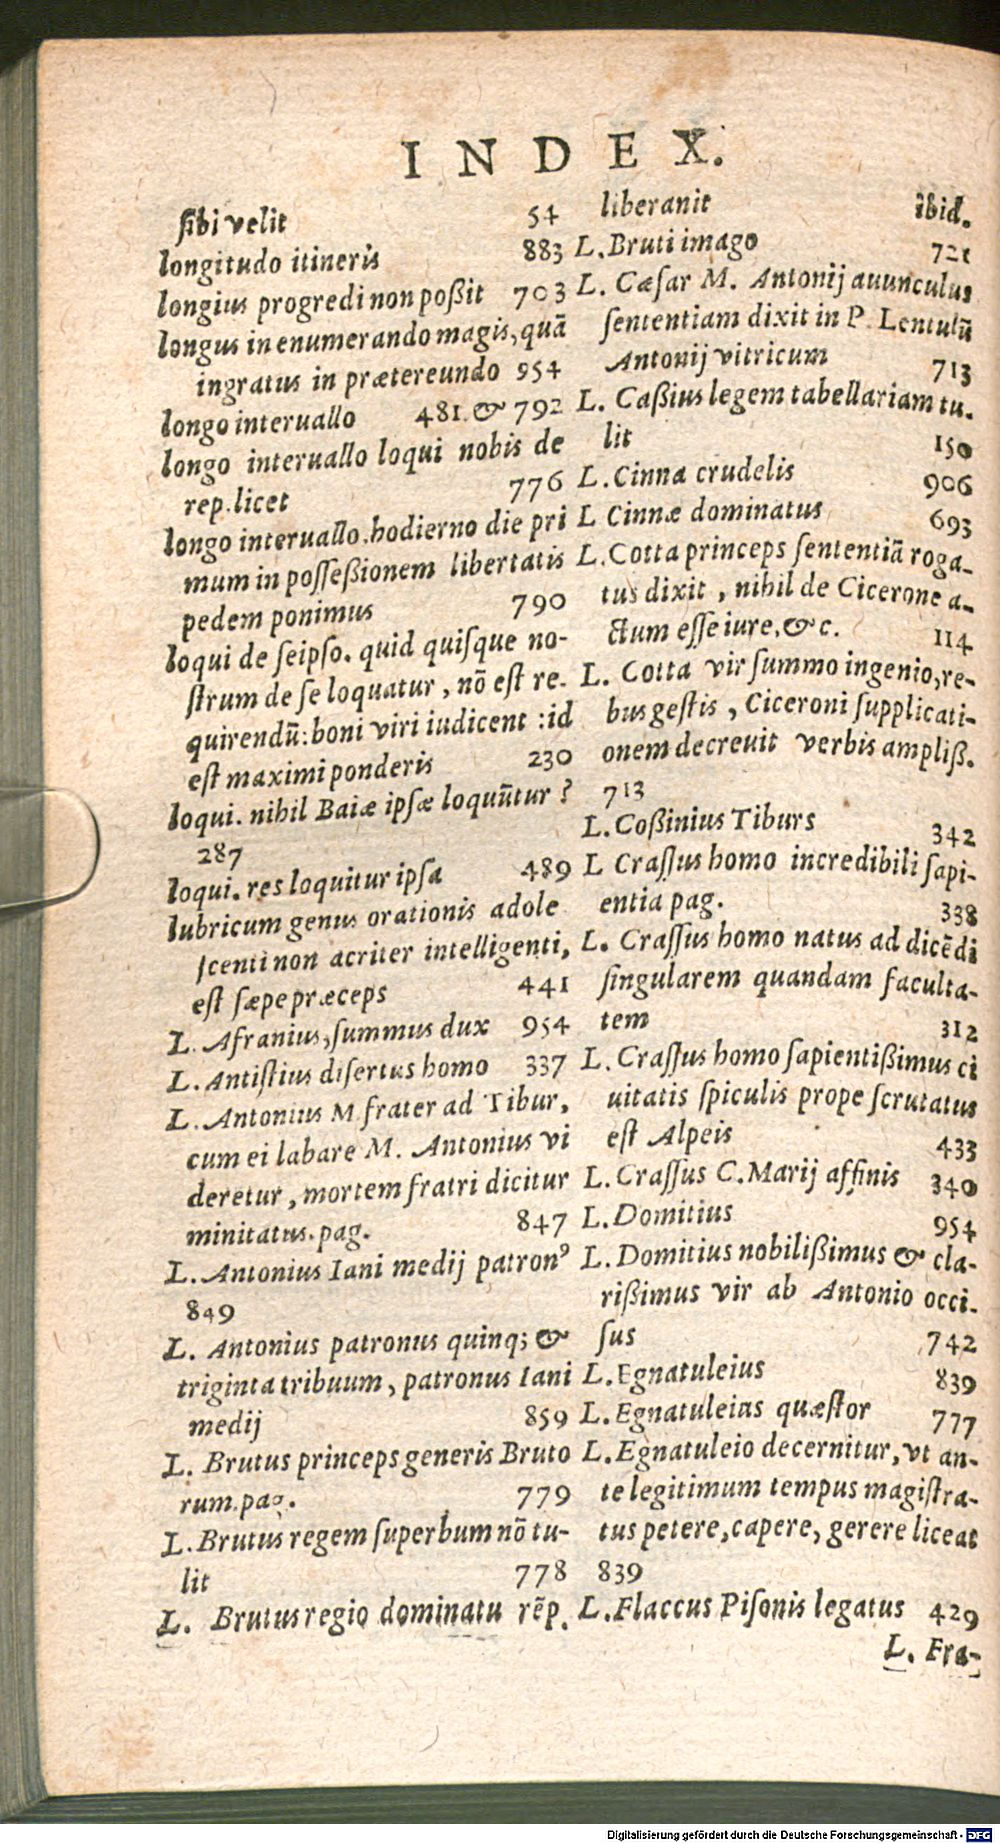 INDEX.
sibi velit 54
longitudo itineris 883
longius progredi non poßit 703
longus in enumerando magis, quã
ingratus in prætereundo 954
longo interuallo 481. & 792
longo interuallo loqui nobis de
rep. licet 776
longo interuallo. hodierno die pri
mum in possessionem libertatis
pedem ponimus 790
loqui de seipso. quid quisque no-
strum de se loquatur, nõ est re-
quirendũ: boni viri iudicent : id
est maximi ponderis 230
loqui. nihil Baiæ ipsæ loquũtur ?
287
loqui. res loquitur ipsa 489
lubricum genus orationis adole
scenti non acriter intelligenti,
est sæpe præceps 441
L. Afranius, summus dux 954
L. Antistius disertus homo 337
L. Antonius M frater ad Tibur,
cum ei labare M. Antonius vi
deretur, mortem fratri dicitur
minitatus. pag. 847
L. Antonius Iani medij patronꝰ
849
L. Antonius patronus quinq; &
triginta tribuum, patronus Iani
medij 859
L. Brutus princeps generis Bruto
rum. pag. 779
L. Brutus regem superbum nõ tu-
lit 778
L. Brutus regio dominatu rẽp.
liberanit ibid.
L. Bruti imago 721
L. Cæsar M. Antonij auunculus
sententiam dixit in P. Lentulũ
Antonij vitricum 713
L. Caßius legem tabellariam tu-
lit 150
L. Cinna crudelis 906
L Cinnæ dominatus 693
L. Cotta princeps sententiã roga-
tus dixit, nihil de Cicerone a-
ctum esse iure, &c. 114
L. Cotta vir summo ingenio, re-
bus gestis, Ciceroni supplicati-
onem decreuit verbis ampliß.
713
L. Coßinius Tiburs 342
L Crassus homo incredibili sapi-
entia pag. 338
L. Crassus homo natus ad dicẽdi
singularem quandam faculta-
tem 312
L. Crassus homo sapientißimus ci
uitatis spiculis prope scrutatus
est Alpeis 433
L. Crassus C. Marij affinis 340
L. Domitius 954
L. Domitius nobilißimus & cla-
rißimus vir ab Antonio occi-
sus 742
L. Egnatuleius 839
L. Egnatuleius quæstor 777
L. Egnatuleio decernitur, vt an-
te legitimum tempus magistra-
tus petere, capere, gerere liceat
839
L. Flaccus Pisonis legatus 429
L. Fra-
Digitalisierung gefördert durch die Deutsche Forschungsgemeinschaft - DFG